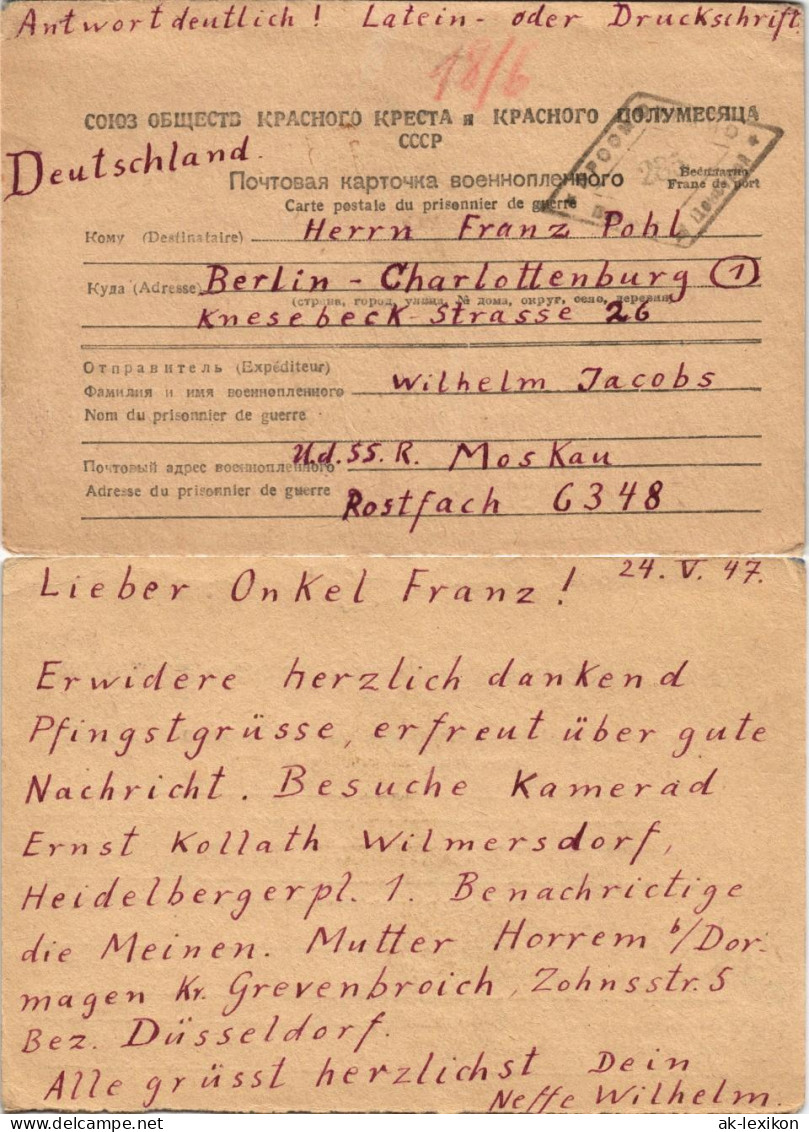 Antwort deutlich! Latein- oder Druckschrift.
18/6
СОЮЗ ОБЩЕСТВ КРАСНОГО КРЕСТА и КРАСНОГО ПОЛУМЕСЯЦА
СССР
Deutschland.
Почтовая карточка военнопленного
Бесплатно
Franc de port
Carte postale du prisonnier de guerre
Кому (Destinataire) Herrn Franz Pohl
Куда (Adresse) Berlin - Charlottenburg 1
(страна, город, улица, № дома, округ, село, деревня)
Knesebeck-Strasse 26
Отправитель (Expéditeur)
Фамилия и имя военнопленного Wilhelm Jacobs
Nom du prisonnier de guerre
Почтовый адрес военнопленного U.d.SS.R. Moskau
Adresse du prisonnier de guerre Postfach 6348
24. V. 47.
Lieber Onkel Franz!
Erwidere herzlich dankend
Pfingstgrüsse, erfreut über gute
Nachricht. Besuche Kamerad
Ernst Kollath Wilmersdorf,
Heidelbergerpl. 1. Benachrictige
die Meinen. Mutter Horrem b/Dor-
magen Kr. Grevenbroich, Zohnsstr. 5
Bez. Düsseldorf.
Alle grüsst herzlichst Dein
Neffe Wilhelm.
ak-lexikon